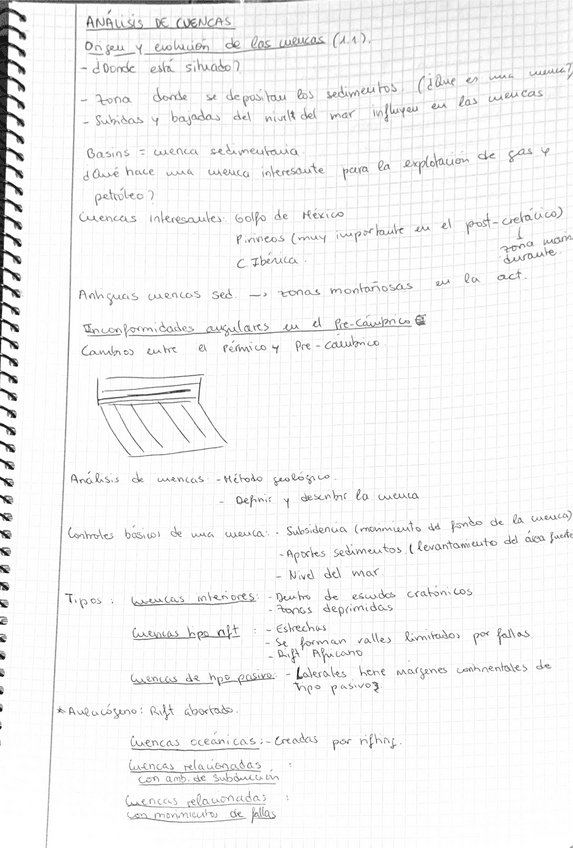 ANÁLISIS DE CUENCAS
Origen y evolución de las cuencas (1.1).
- ¿Donde está situado?
- Zona donde se depositan los sedimentos (¿Que es una cuenca?)
- Subidas y bajadas del nivel del mar influyen en las cuencas
Basins = cuenca sedimentaria
¿Qué hace una cuenca interesante para la explotación de gas y
petróleo?
Cuencas interesantes Golfo de México
Pirineos (muy importante en el post-cretácico)
C. Ibérica.
zona mari
durante
Antiguas cuencas sed. → zonas montañosas en la act.
Inconformidades angulares en el Pre-Cámbrico
Cambios entre el Pérmico y Pre-cámbrico
Análisis de cuencas: - Método geológico.
- Definir y describir la cuenca
Controles básicos de una cuenca: - Subsidencia (movimiento del fondo de la cuenca)
- Aportes sedimentos (levantamiento del área fuente
- Nivel del mar.
Tipos: Cuencas interiores: - Dentro de escudos cratónicos
- Zonas deprimidas
Cuencas tipo rift: - Estrechas
- Se forman valles limitados por fallas.
- Rift Africano
Cuencas de tipo pasivo: - Laterales tiene márgenes continentales de
tipo pasivo
* Aulacógeno: Rift abortado.
Cuencas oceánicas: - Creadas por rifting.
Cuencas relacionadas :
con amb. de subducción
Cuencas relacionadas :
con movimientos de fallas